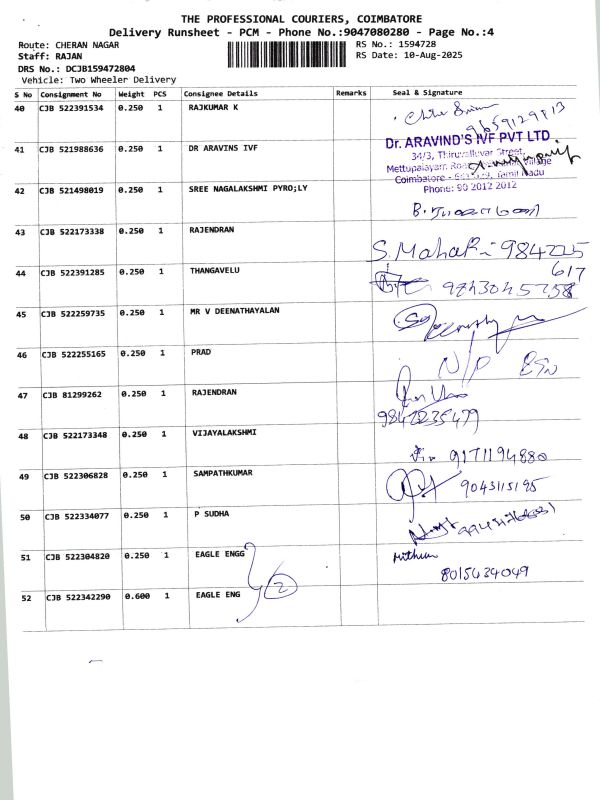 THE PROFESSIONAL COURIERS, COIMBATORE
Delivery Runsheet - PCM - Phone No.:9047080280 - Page No.:4
Route: CHERAN NAGAR RS No.: 1594728
Staff: RAJAN RS Date: 10-Aug-2025
DRS No.: DCJB159472804
Vehicle: Two Wheeler Delivery
S No Consignment No Weight PCS Consignee Details Remarks Seal & Signature
40 CJB 522391534 0.250 1 RAJKUMAR K
9659129113
41 CJB 521988636 0.250 1 DR ARAVINS IVF
Dr. ARAVIND'S IVF PVT LTD
34/3, Thiruvalluvar Street,
Mettupalayam Road, Village
Coimbatore - Tamil Nadu
Phone: 90 2012 2012
42 CJB 521498019 0.250 1 SREE NAGALAKSHMI PYRO;LY
43 CJB 522173338 0.250 1 RAJENDRAN
S. Maha 984225
617
44 CJB 522391285 0.250 1 THANGAVELU
45 CJB 522259735 0.250 1 MR V DEENATHAYALAN
46 CJB 522255165 0.250 1 PRAD N/P
47 CJB 81299262 0.250 1 RAJENDRAN
9842235479
48 CJB 522173348 0.250 1 VIJAYALAKSHMI
9171194880
49 CJB 522306828 0.250 1 SAMPATHKUMAR 9043115195
50 CJB 522334077 0.250 1 P SUDHA
51 CJB 522304820 0.250 1 EAGLE ENGG Mithun
8015434049
52 CJB 522342290 0.600 1 EAGLE ENG 2